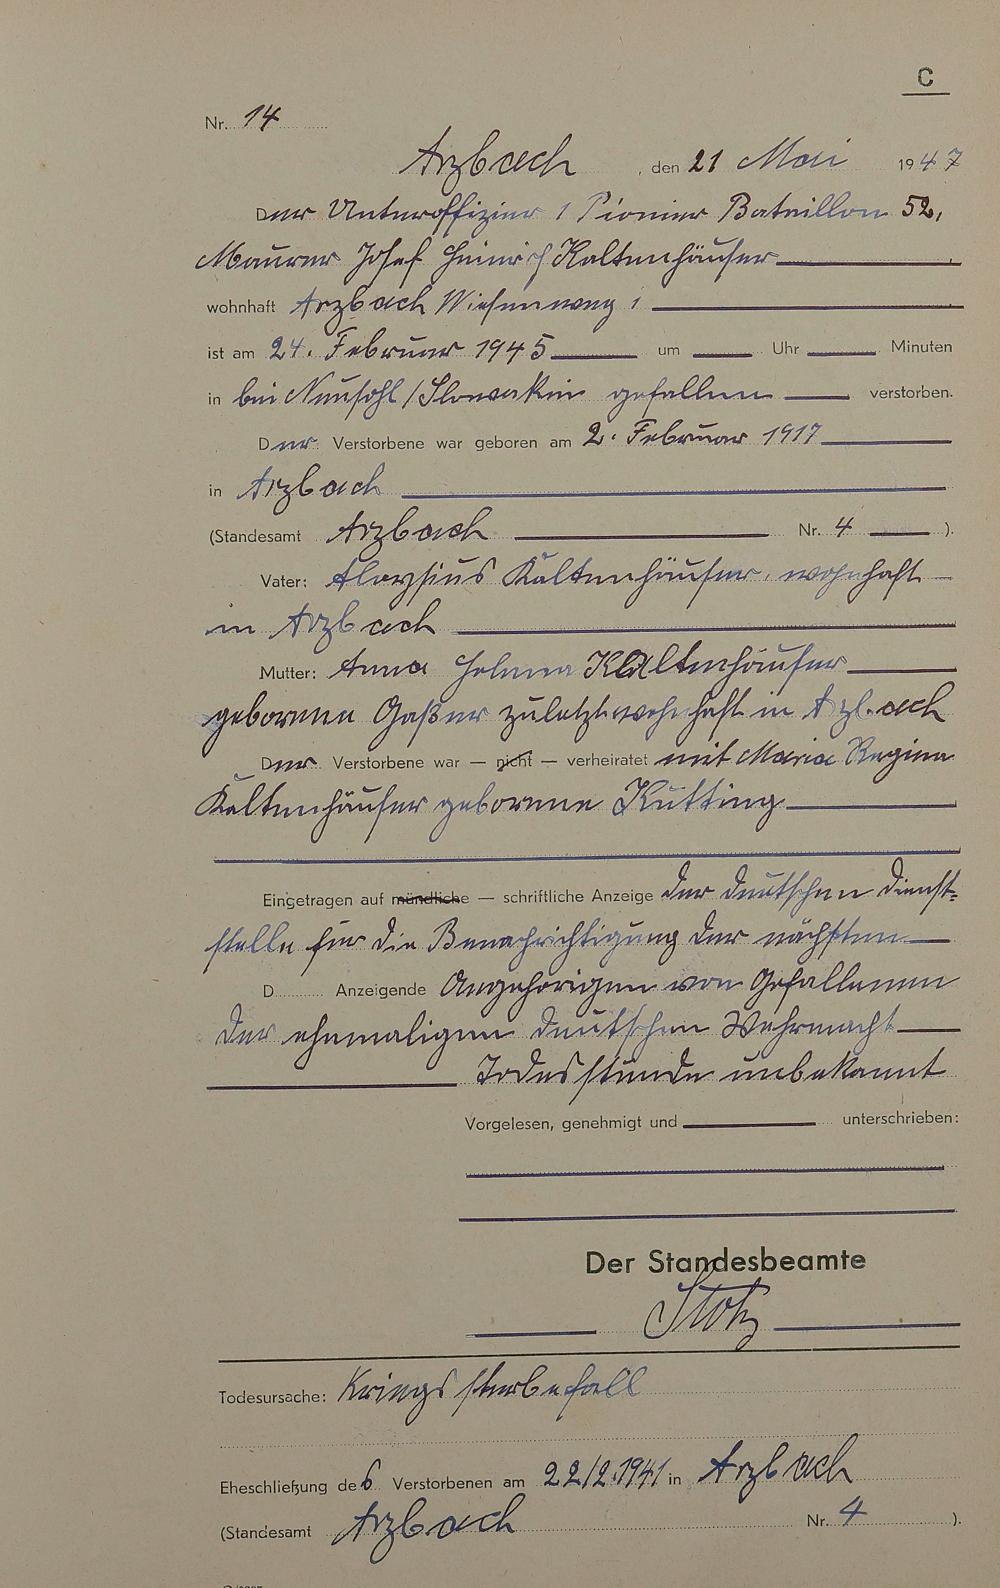 C
Nr. 14
Arzbach, den 21 Mai 1947
Der Unteroffizier 1 Pionier Bataillon 52,
Maurer Josef Heinrich Kaltenhäuser
wohnhaft Arzbach Wiesenweg 1
ist am 24. Februar 1945 um Uhr Minuten
in bei Neusohl/Slowakei gefallen verstorben.
Der Verstorbene war geboren am 2. Februar 1917
in Arzbach
(Standesamt Arzbach Nr. 4 ).
Vater: Aloysius Kaltenhäuser, wohnhaft
in Arzbach
Mutter: Anna Helena Kaltenhäuser
geborene Gaßner zuletzt wohnhaft in Arzbach
Der Verstorbene war — nicht — verheiratet mit Maria Regina
Kaltenhäuser geborene Kutting
Eingetragen auf mündliche — schriftliche Anzeige der deutschen Dienst-
stelle für die Benachrichtigung der nächsten
D Anzeigende Angehörigen von Gefallenen
der ehemaligen deutschen Wehrmacht
Todesstunde unbekannt
Vorgelesen, genehmigt und unterschrieben:
Der Standesbeamte
Todesursache: Kriegssterbefall
Eheschließung des Verstorbenen am 22/2.1941 in Arzbach
(Standesamt Arzbach Nr. 4 ).